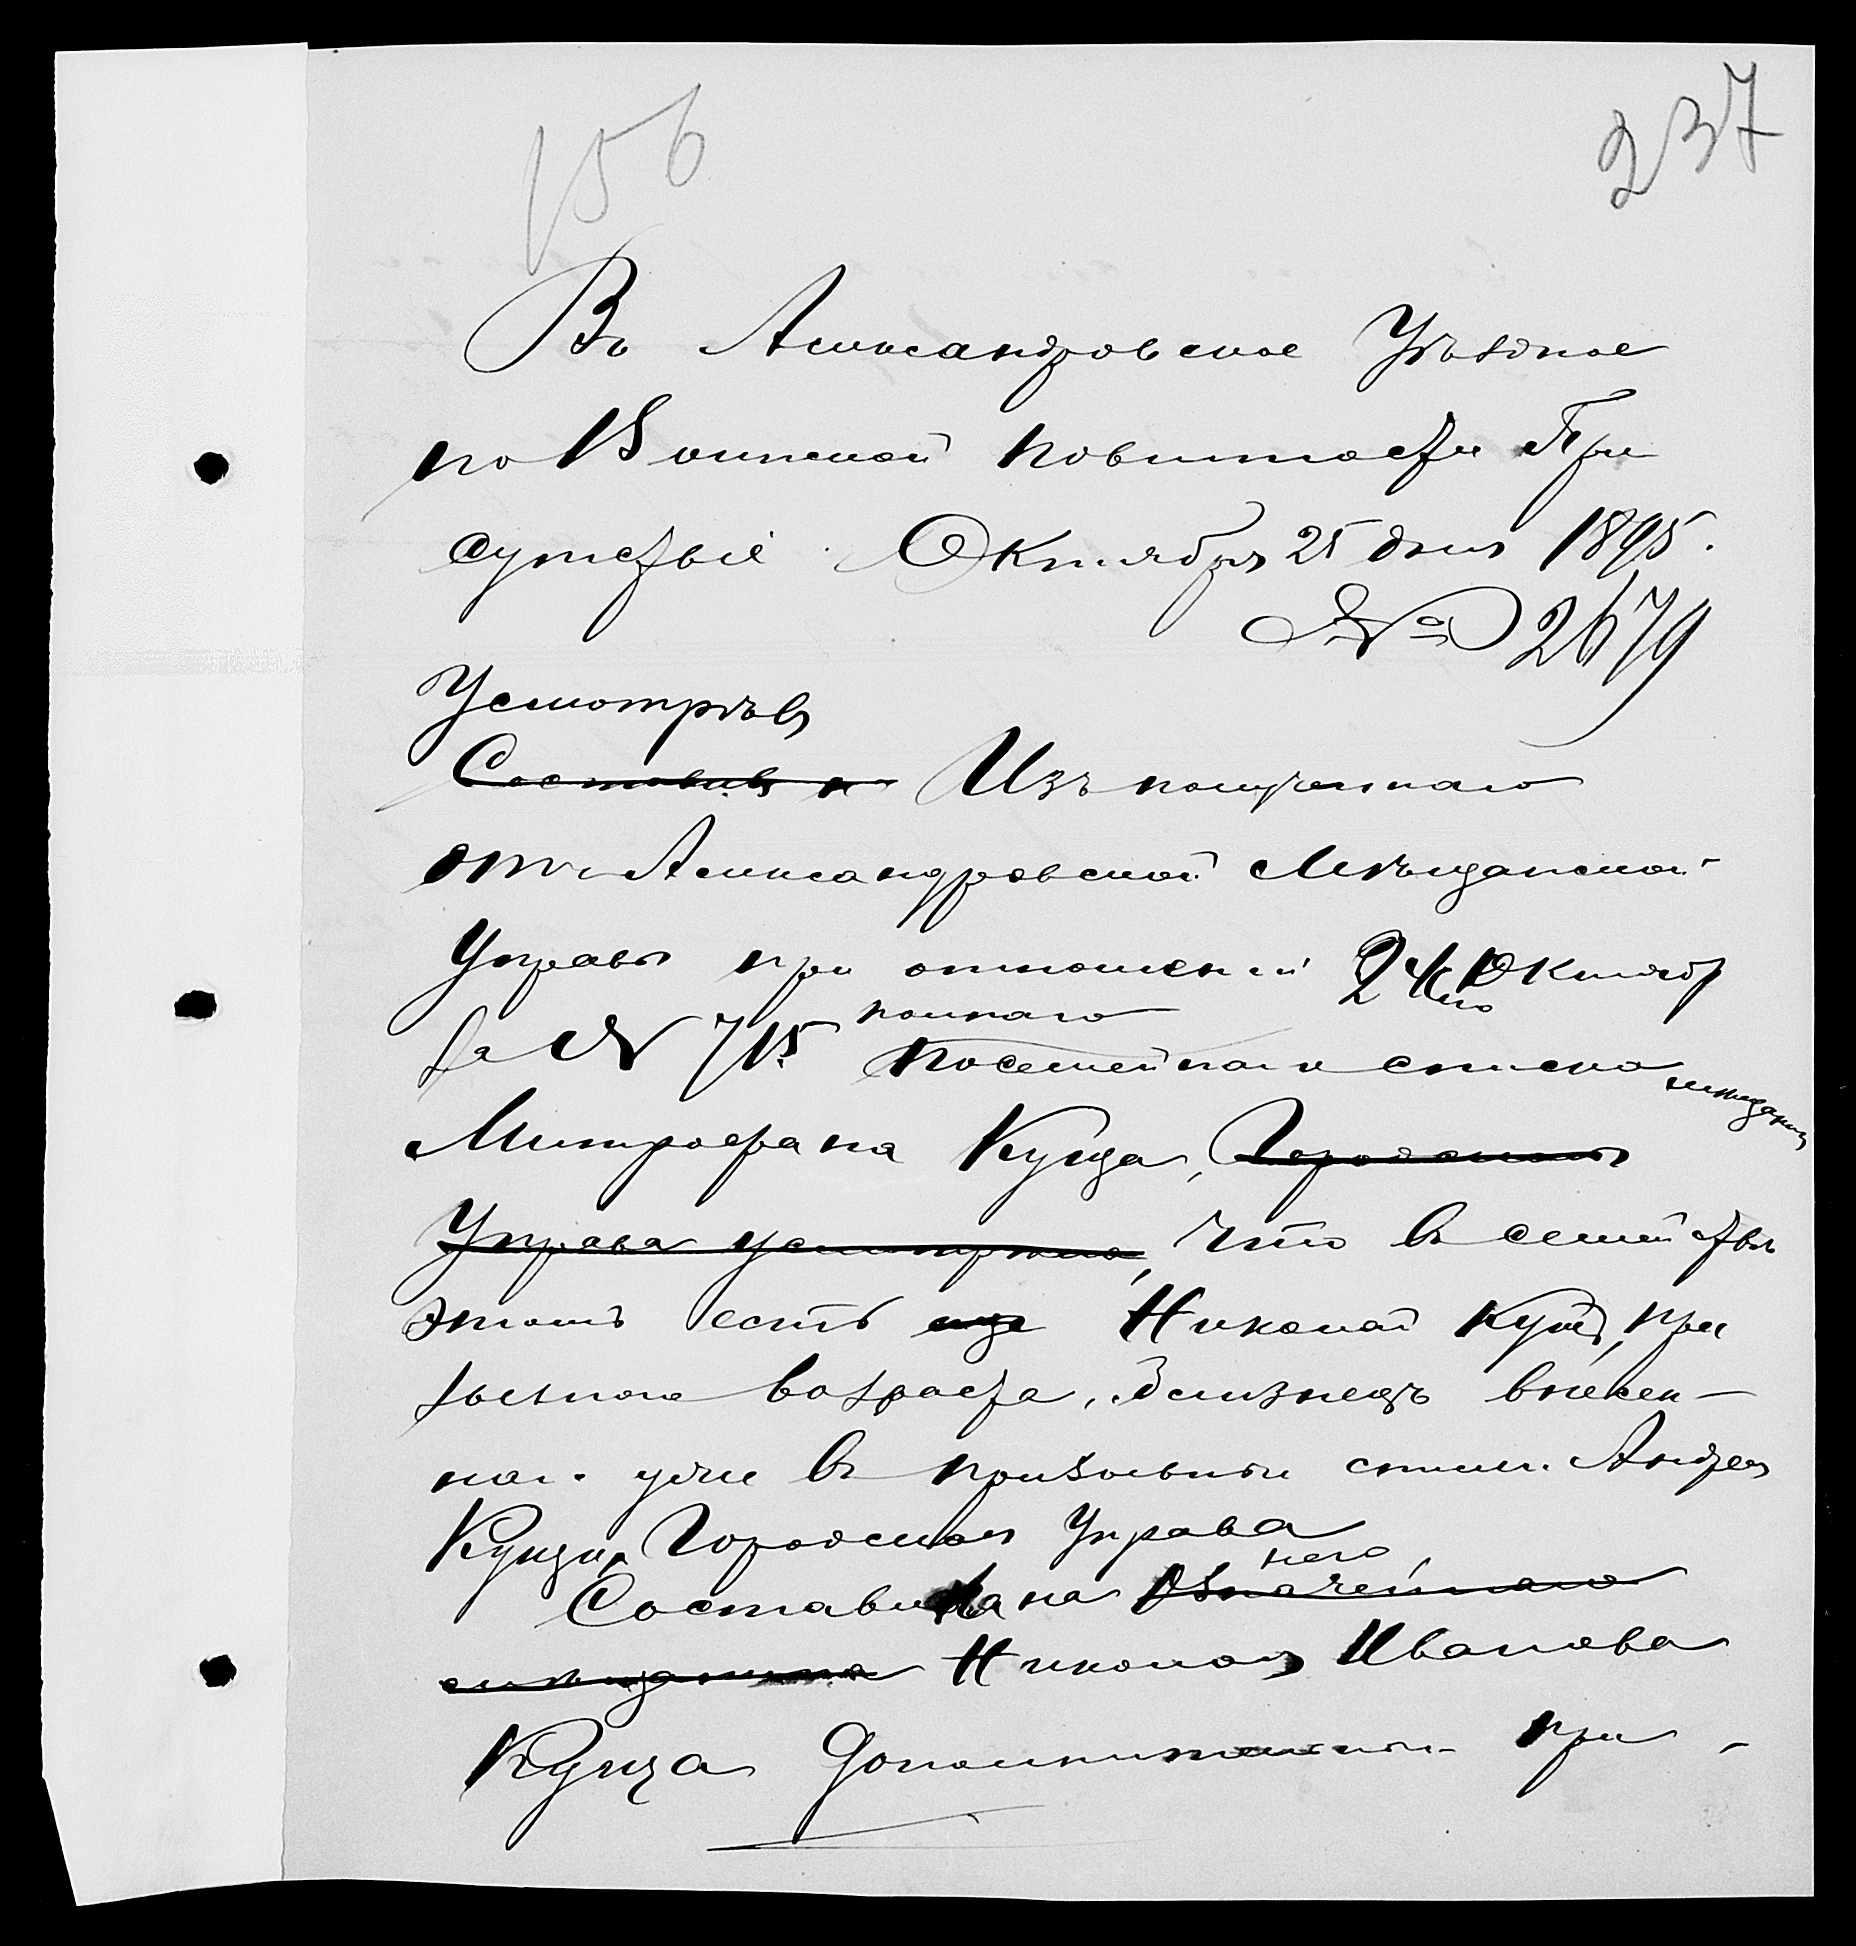 156
237
Въ Александровское Уѣздное
по Воинской повинности При
сутствіе. Октября 25 дня 1895.
№ 2679
Усмотрѣвъ
Составивъ Изъ полученнаго
отъ Александровской Мѣщанской
Управы при отношеніи 24 Октябр
за № 715 полнаго
посемейнаго списка мѣщанина
Митрофана Куща, Городская
Управа усмотрѣла, что въ семействѣ
этомъ есть еще Николай Кущъ, при
зывного возраста, близнецъ внесен-
наго уже въ призывные списки Андрея
Куща, Городская Управа
него
Составила на Означеннаго
мѣщанина Николая Иванова
Куща дополнительный при-